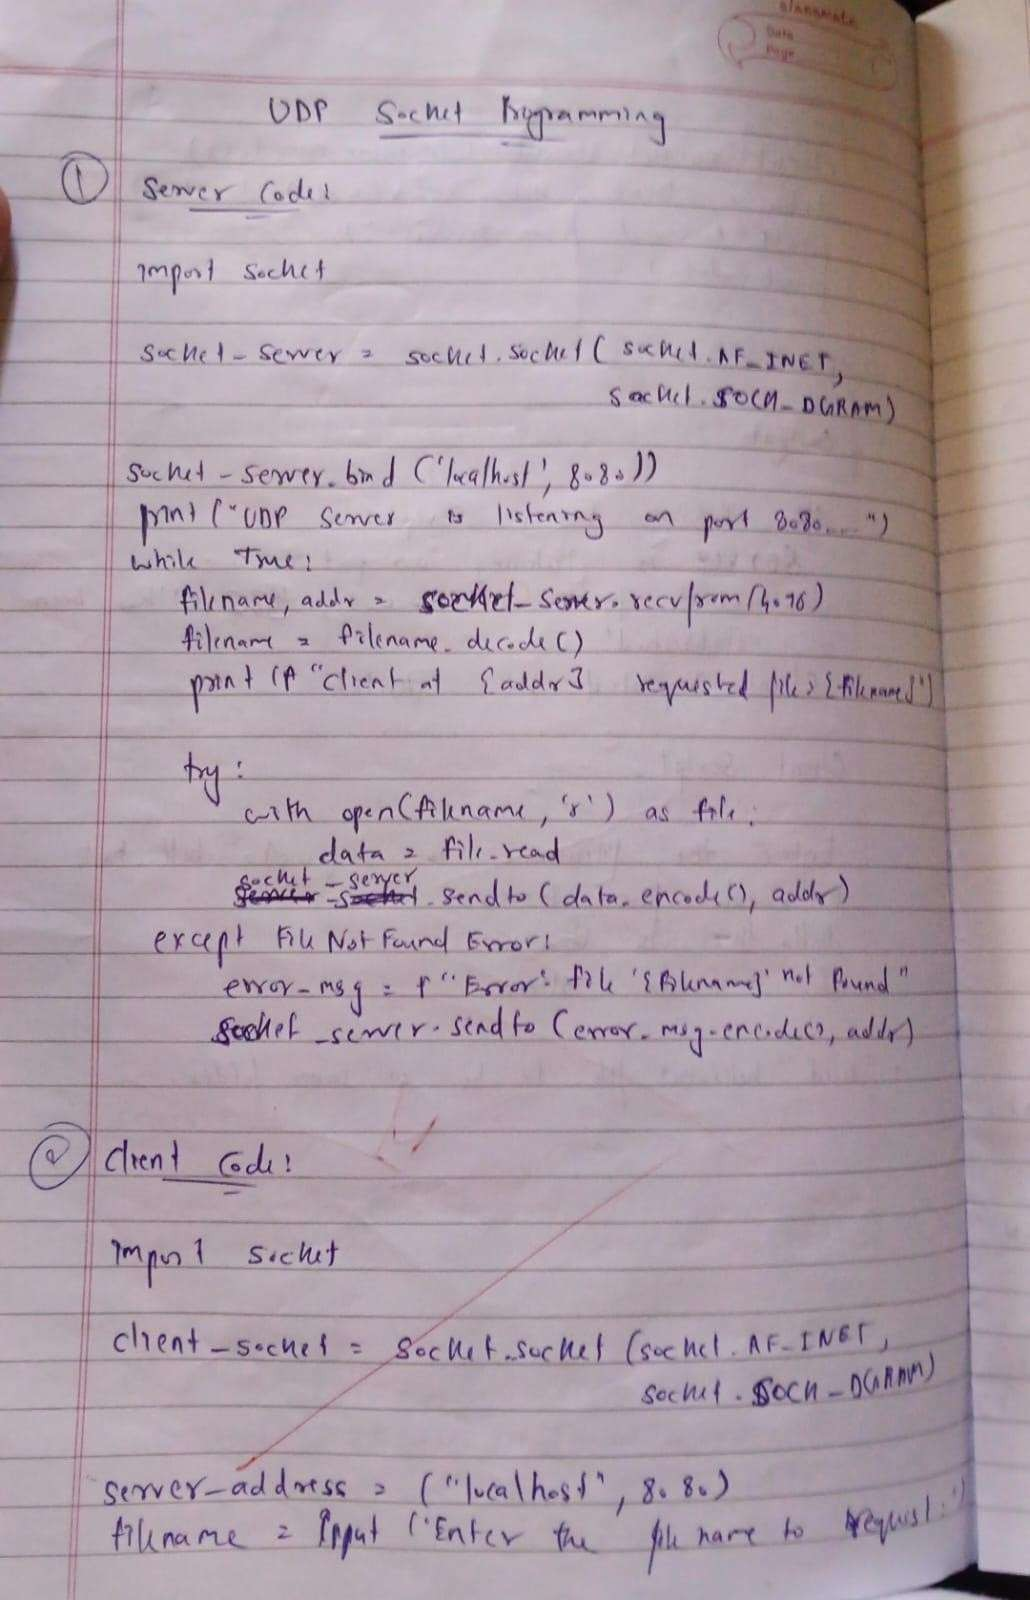 classmate
Date
Page
UDP Socket Programming
1 Server Code:
import socket
socket_server = socket.socket(socket.AF_INET,
socket.SOCK_DGRAM)
socket_server.bind('localhost', 8080))
print("UDP Server is listening on port 8080....")
while True:
filename, addr = socket_server.recvfrom(4096)
filename = filename.decode()
print(f"client at {addr} requested file: {filename}")
try:
with open(filename, 'r') as file:
data = file.read
socket_server
server_socket.sendto(data.encode(), addr)
except FileNotFoundError:
error_msg = f"Error: file '{filename}' not found"
socket_server.sendto(error_msg.encode(), addr)
2 Client Code:
import socket
client_socket = socket.socket(socket.AF_INET,
socket.SOCK_DGRAM)
server_address = ("localhost", 8080)
filename = input("Enter the file name to request:")